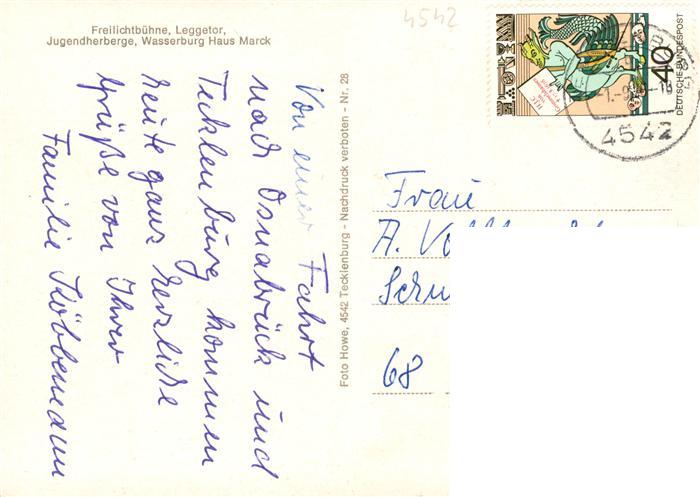 4542
Freilichtbühne, Leggetor,
Jugendherberge, Wasserburg Haus Marck
Von einer Fahrt
nach Osnabrück und
Tecklenburg kommen
heute ganz herzliche
Grüße von Ihrer
Familie Köbbemann
Foto Howe, 4542 Tecklenburg - Nachdruck verboten - Nr. 28
40
DEUTSCHE BUNDESPOST
4542
Frau
A.
68